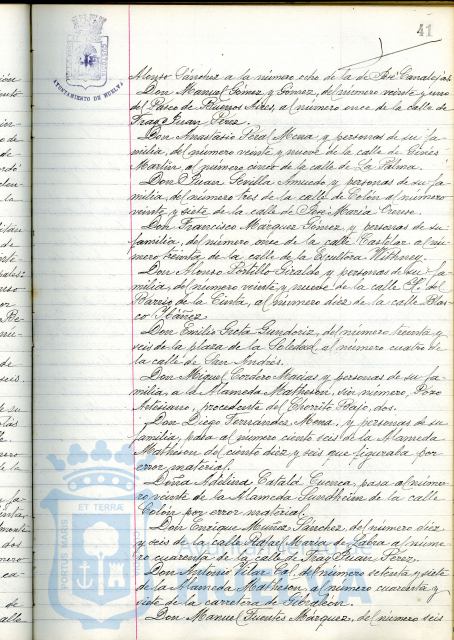 41
AYUNTAMIENTO DE HUELVA
Alonso Sánchez a la número ocho de la de José Canalejas.
Don Manuel Gómez y Gómez, del número veinte y uno
del Paseo de Buenos Aires, al número once de la calle de
Fray Juan Pérez.
Don Anastasio Mena y personas de su fa-
milia, del número veinte y nueve de la calle de Ginés
Martín, al número cinco de la calle de La Palma.
Don Juan Sevilla Amuedo y personas de su fa-
milia, del número tres de la calle de Colón al número
veinte y siete de la calle de José María
Don Francisco Márquez Gómez, y personas de su
familia, del número once de la calle Castelar al nú-
mero treinta de la calle de la Escultora Withney.
Don Alonso Portillo Giraldo y personas de su fa-
milia, del número veinte y nueve de la calle del
Barrio de la Cinta, al número diez de la calle Blas-
co Ibáñez
Don Emilio del número treinta y
seis de la plaza de la Soledad, al número cuatro de
la calle de San Andrés.
Don Miguel Cordero Macías y personas de su fa-
milia, a la Alameda Matheson, sin número, Pozo
Artesiano, procedente del Chorrito Bajo, dos.
Don Diego Fernández Mena, y personas de su
familia, pasa al número ciento seis de la Alameda
Matheson del ciento diez y seis que figuraba por
error material.
Doña Adelina Catalá Cuenca, pasa al núme-
ro veinte de la Alameda Sundheim de la calle
Colón por error material.
Don Enrique Muñoz Sánchez, del número diez
y seis de la calle Rafael María de Labra al núme-
ro cuarenta de la calle de Fray Juan Pérez.
Don Antonio Vilar Col, del número setenta y siete
de la Alameda Matheson, al número cuarenta y
siete de la carretera de Gibraleón.
Don Manuel Fuentes Márquez, del número seis
PORTUS MARIS ET TERRAE